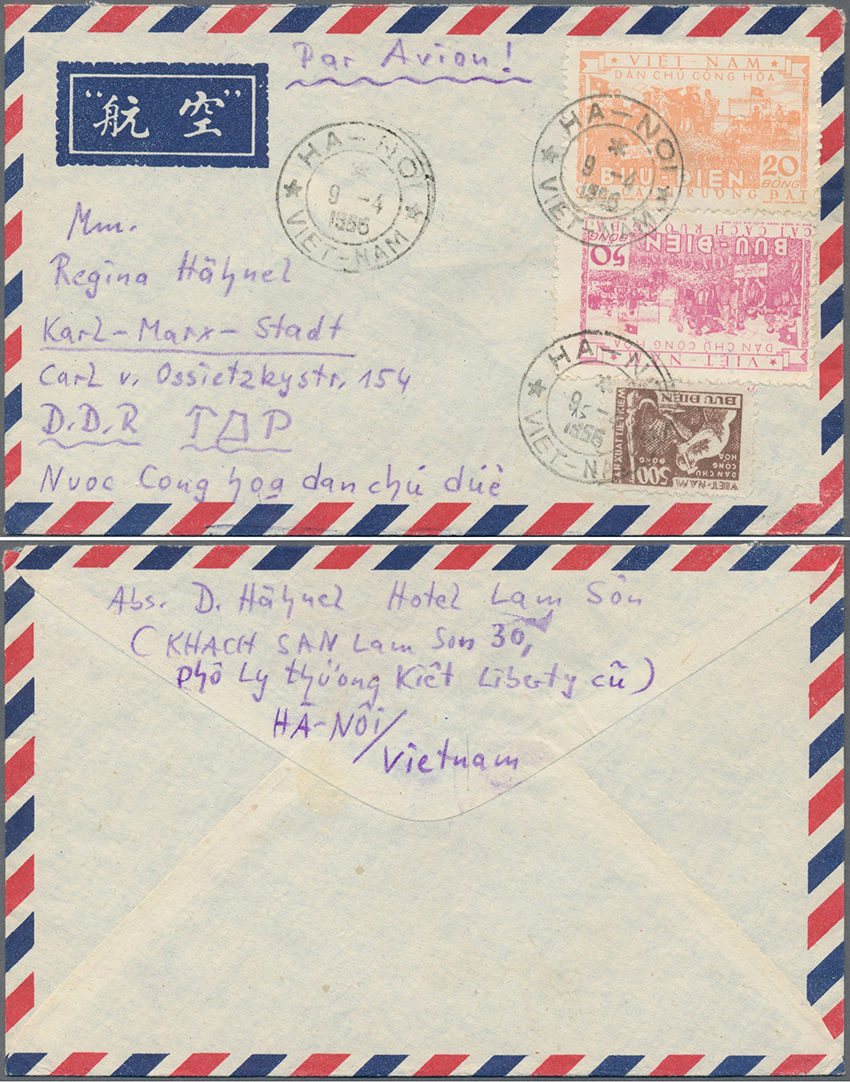 Par Avion!
"航空"
VIỆT-NAM
DÂN CHỦ CỘNG HÒA
20
ĐỒNG
BƯU-ĐIỆN
RUỘNG ĐẤT
HA-NOI
9-4
1956
VIET-NAM
HA-NOI
9-4
1956
VIET-NAM
CẢI CÁCH
BƯU-ĐIỆN
50
ĐỒNG
DÂN CHỦ CỘNG HÒA
VIỆT-NAM
HA-N
9-
1956
VIET-NA
BƯU ĐIỆN
XUẤT TIẾT KIỆM
500
ĐỒNG
DÂN CHỦ
CỘNG
HÒA
VIỆT-NAM
Mm.
Regina Hähnel
Karl-Marx-Stadt
Carl v. Ossietzkystr. 154
D.D.R ГДР
Nuoc Cong hoạ dan chú đúè
Abs. D. Hähnel Hotel Lam Sôn
(KHACH SAN Lam Son 30,
phô Ly thường Kiêt Liberty cũ)
HÀ-NÔi/
Vietnam